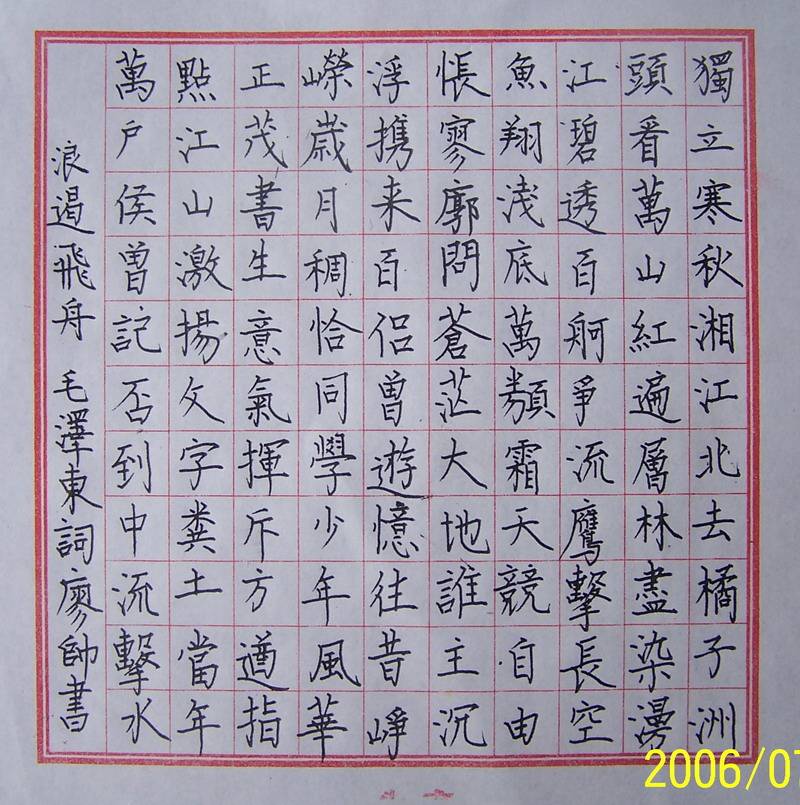 獨立寒秋湘江北去橘子洲
頭看萬山紅遍層林盡染漫
江碧透百舸爭流鷹擊長空
魚翔淺底萬類霜天競自由
悵寥廓問蒼茫大地誰主沉
浮携来百侣曾遊憶往昔崢
嶸歲月稠恰同學少年風華
正茂書生意氣揮斥方遒指
點江山激揚文字糞土當年
萬户侯曾記否到中流擊水
浪遏飛舟 毛澤東詞廖帥書
2006/07